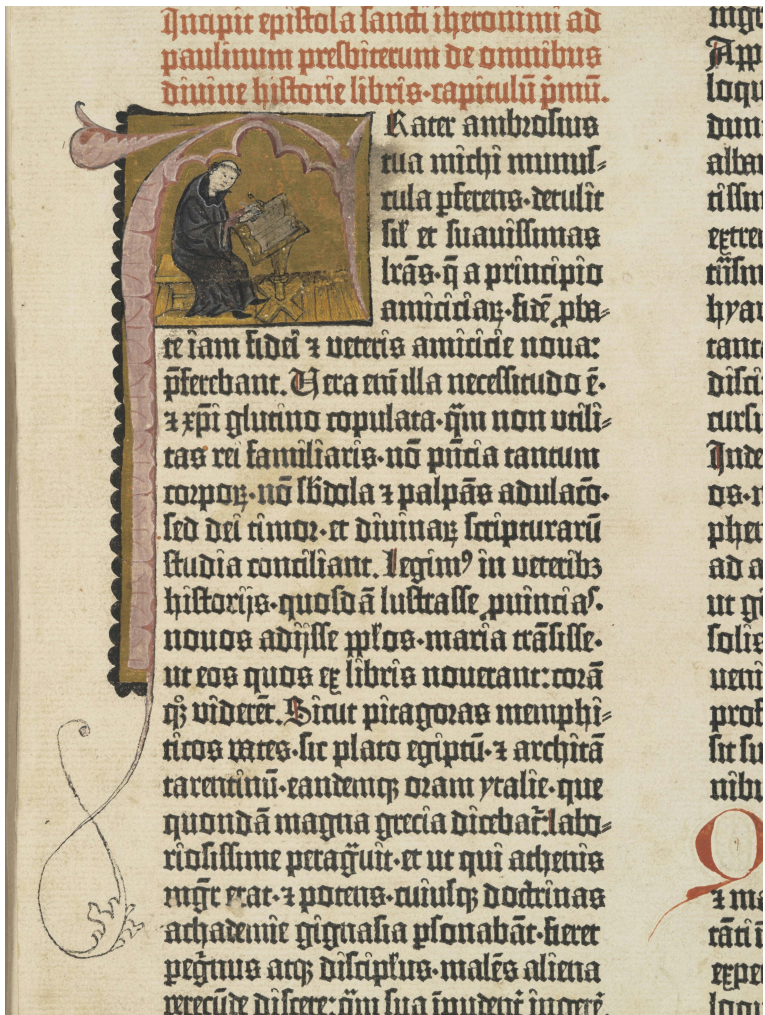 Incipit epistola sancti iheronimi ad
paulinum presbiterum de omnibus
divine historie libris·capitulū p̄mū.
Frater ambrosius
tua michi munus⸗
cula ꝑferens·detulit
sił et suavissimas
lr̄as·q̄ a principio
amiciciaꝝ·fidē ꝓba⸗
te iam fidei ⁊ veteris amicicie nova:
p̄ferebant. Vera em̄ illa necessitudo ē·
⁊ xp̄i glutino copulata·q̄m non utili⸗
tas rei familiaris·nō pn̄cia tantum
corpoꝝ·nō sb̄dola ⁊ palpās adulac̄o·
sed dei timor·et divinaꝝ scripturarū
studia conciliant. Legimꝰ in veteribꝫ
historijs·quosdā lustrasse ꝓvincias·
novos adijsse ppl̄os·maria trāsisse·
ut eos quos ex libris noverant: corā
qꝫ viderēt. Sicut pitagoras memphi⸗
ticos vates·sic plato egiptū·⁊ architā
tarentinū·eandemqꝫ oram ytalie·que
quondā magna grecia dicebat̄: labo⸗
riosissime peragvit·et ut qui athenis
mgr̄ erat·⁊ potens·cuiusqꝫ doctrinas
achademie gignasia ꝑsonabāt·fieret
peg̊rinus atqꝫ discipl̄us·malēs aliena
verecūde discere: q̄m sua īpudent̄ ingerē·
ingr
App
loqu
dum
alba
tissim
extre
tiism
hyar
tant
disci
cursu
Inde
os·n
phe
ad a
ut gi
solis
veni
prof
sit su
nibu
Q
⁊ ma
tāti ī
expe
loqu